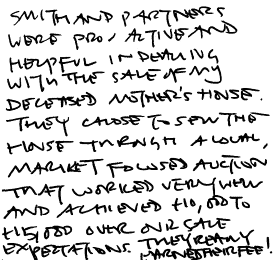 SMITH AND PARTNERS
WERE PRO, ACTIVE AND
HELPFUL IN DEALING
WITH THE SALE OF MY
DECEASED MOTHER'S HOUSE.
THEY CHOSE TO SELL THE
HOUSE THROUGH A LOCAL,
MARKET FOCUSED AUCTION
THAT WORKED VERY WELL
AND ACHIEVED £10,000 TO
£15,000 OVER OUR SALE
EXPECTATIONS. THEY REALLY
EARNED THEIR FEE!